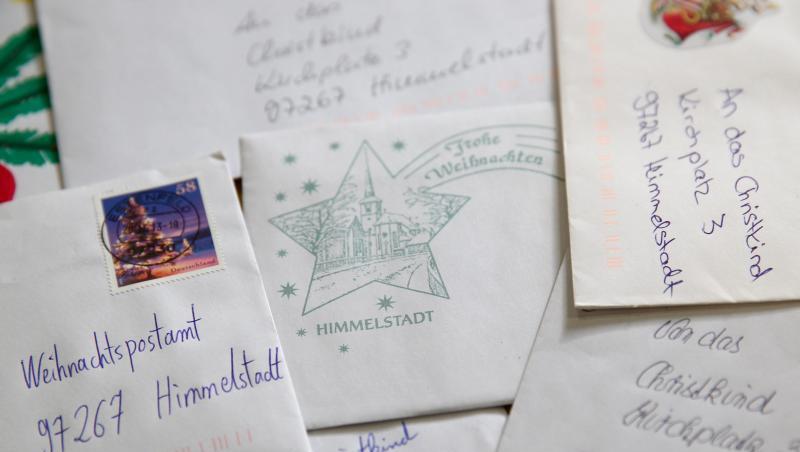 An das
Christkind
Kirchplatz 3
97267 Himmelstadt
Frohe
Weihnachten
HIMMELSTADT
58
Deutschland
Weihnachtspostamt
97267 Himmelstadt
An das Christkind
Kirchplatz 3
97267 Himmelstadt
An das
Christkind
Kirchplatz